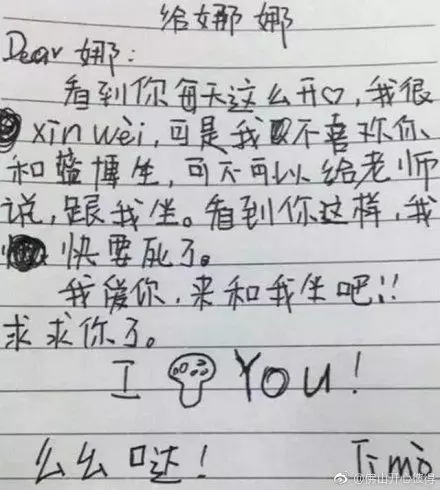 给娜娜
Dear 娜:
看到你每天这么开♡,我很
xīn wèi,可是我不喜欢你
和蓝博坐,可不可以给老师
说,跟我坐。看到你这样,我
快要死了。
我爱你,来和我坐吧!!
求求你了。
I You!
么么哒! Timo
@佛山开心彼得